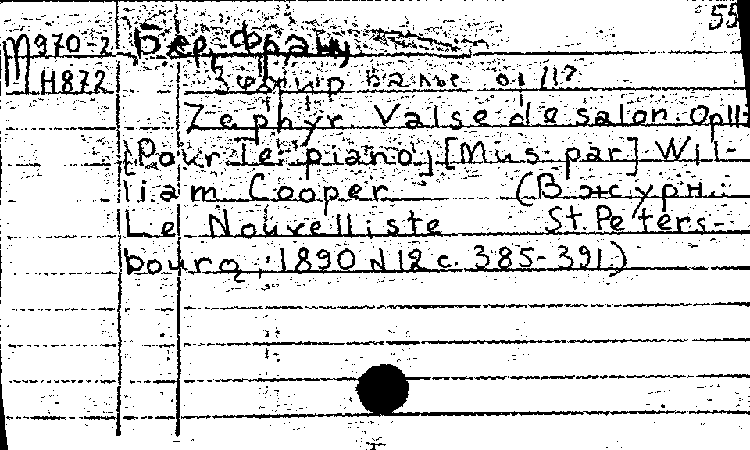 55
М970-2 Бер, Франц
Н872 Зефир Вальс op 117
Zephyr. Valse de salon. Op 117
[Pour le piano] [Mus. par] Wil-
liam Cooper (В журн.:
Le Nouvelliste St. Peters-
bourg, 1890 N12 с. 385-391)